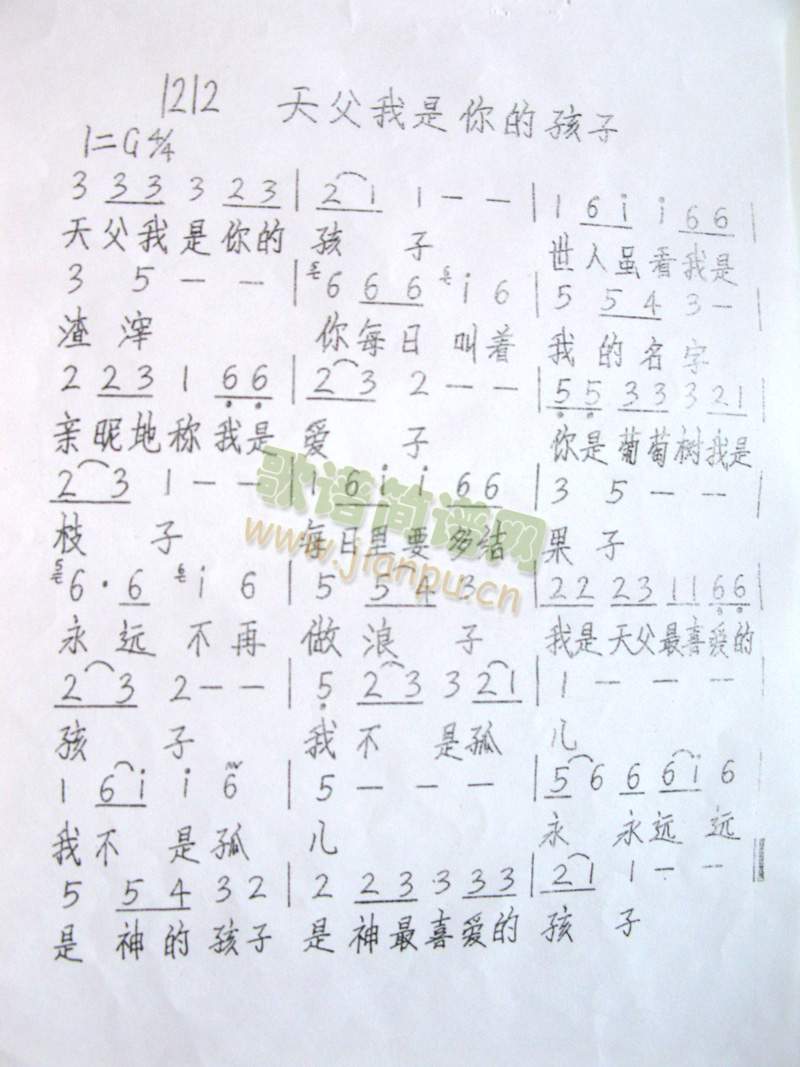 1212 天父我是你的孩子
1=G 4/4
3 33 3 23 | 21 1 - - | 1 6i i 66 |
天父我是你的 孩 子 世人虽看我是
3 5 - - | 6 66 i 6 | 5 54 3 - |
渣滓 你每日叫着 我的名字
2 23 1 66 | 23 2 - - | 55 33 3 21 |
亲昵地称我是 爱 子 你是葡萄树我是
23 1 - - | 1 6i i 66 | 3 5 - - |
枝 子 每日里要多结 果子
6·6 i 6 | 5 54 3 | 22 23 11 66 |
永远不再 做浪子 我是天父最喜爱的
23 2 - - | 5 23 3 21 | 1 - - - |
孩 子 我不是孤 儿
1 6i i 6 | 5 - - - | 56 6 6i 6
我不是孤 儿 永 永远 远
5 54 32 | 2 23 3 33 | 21 1 - -
是神的孩子 是神最喜爱的 孩 子
歌谱简谱网
www.jianpu.cn